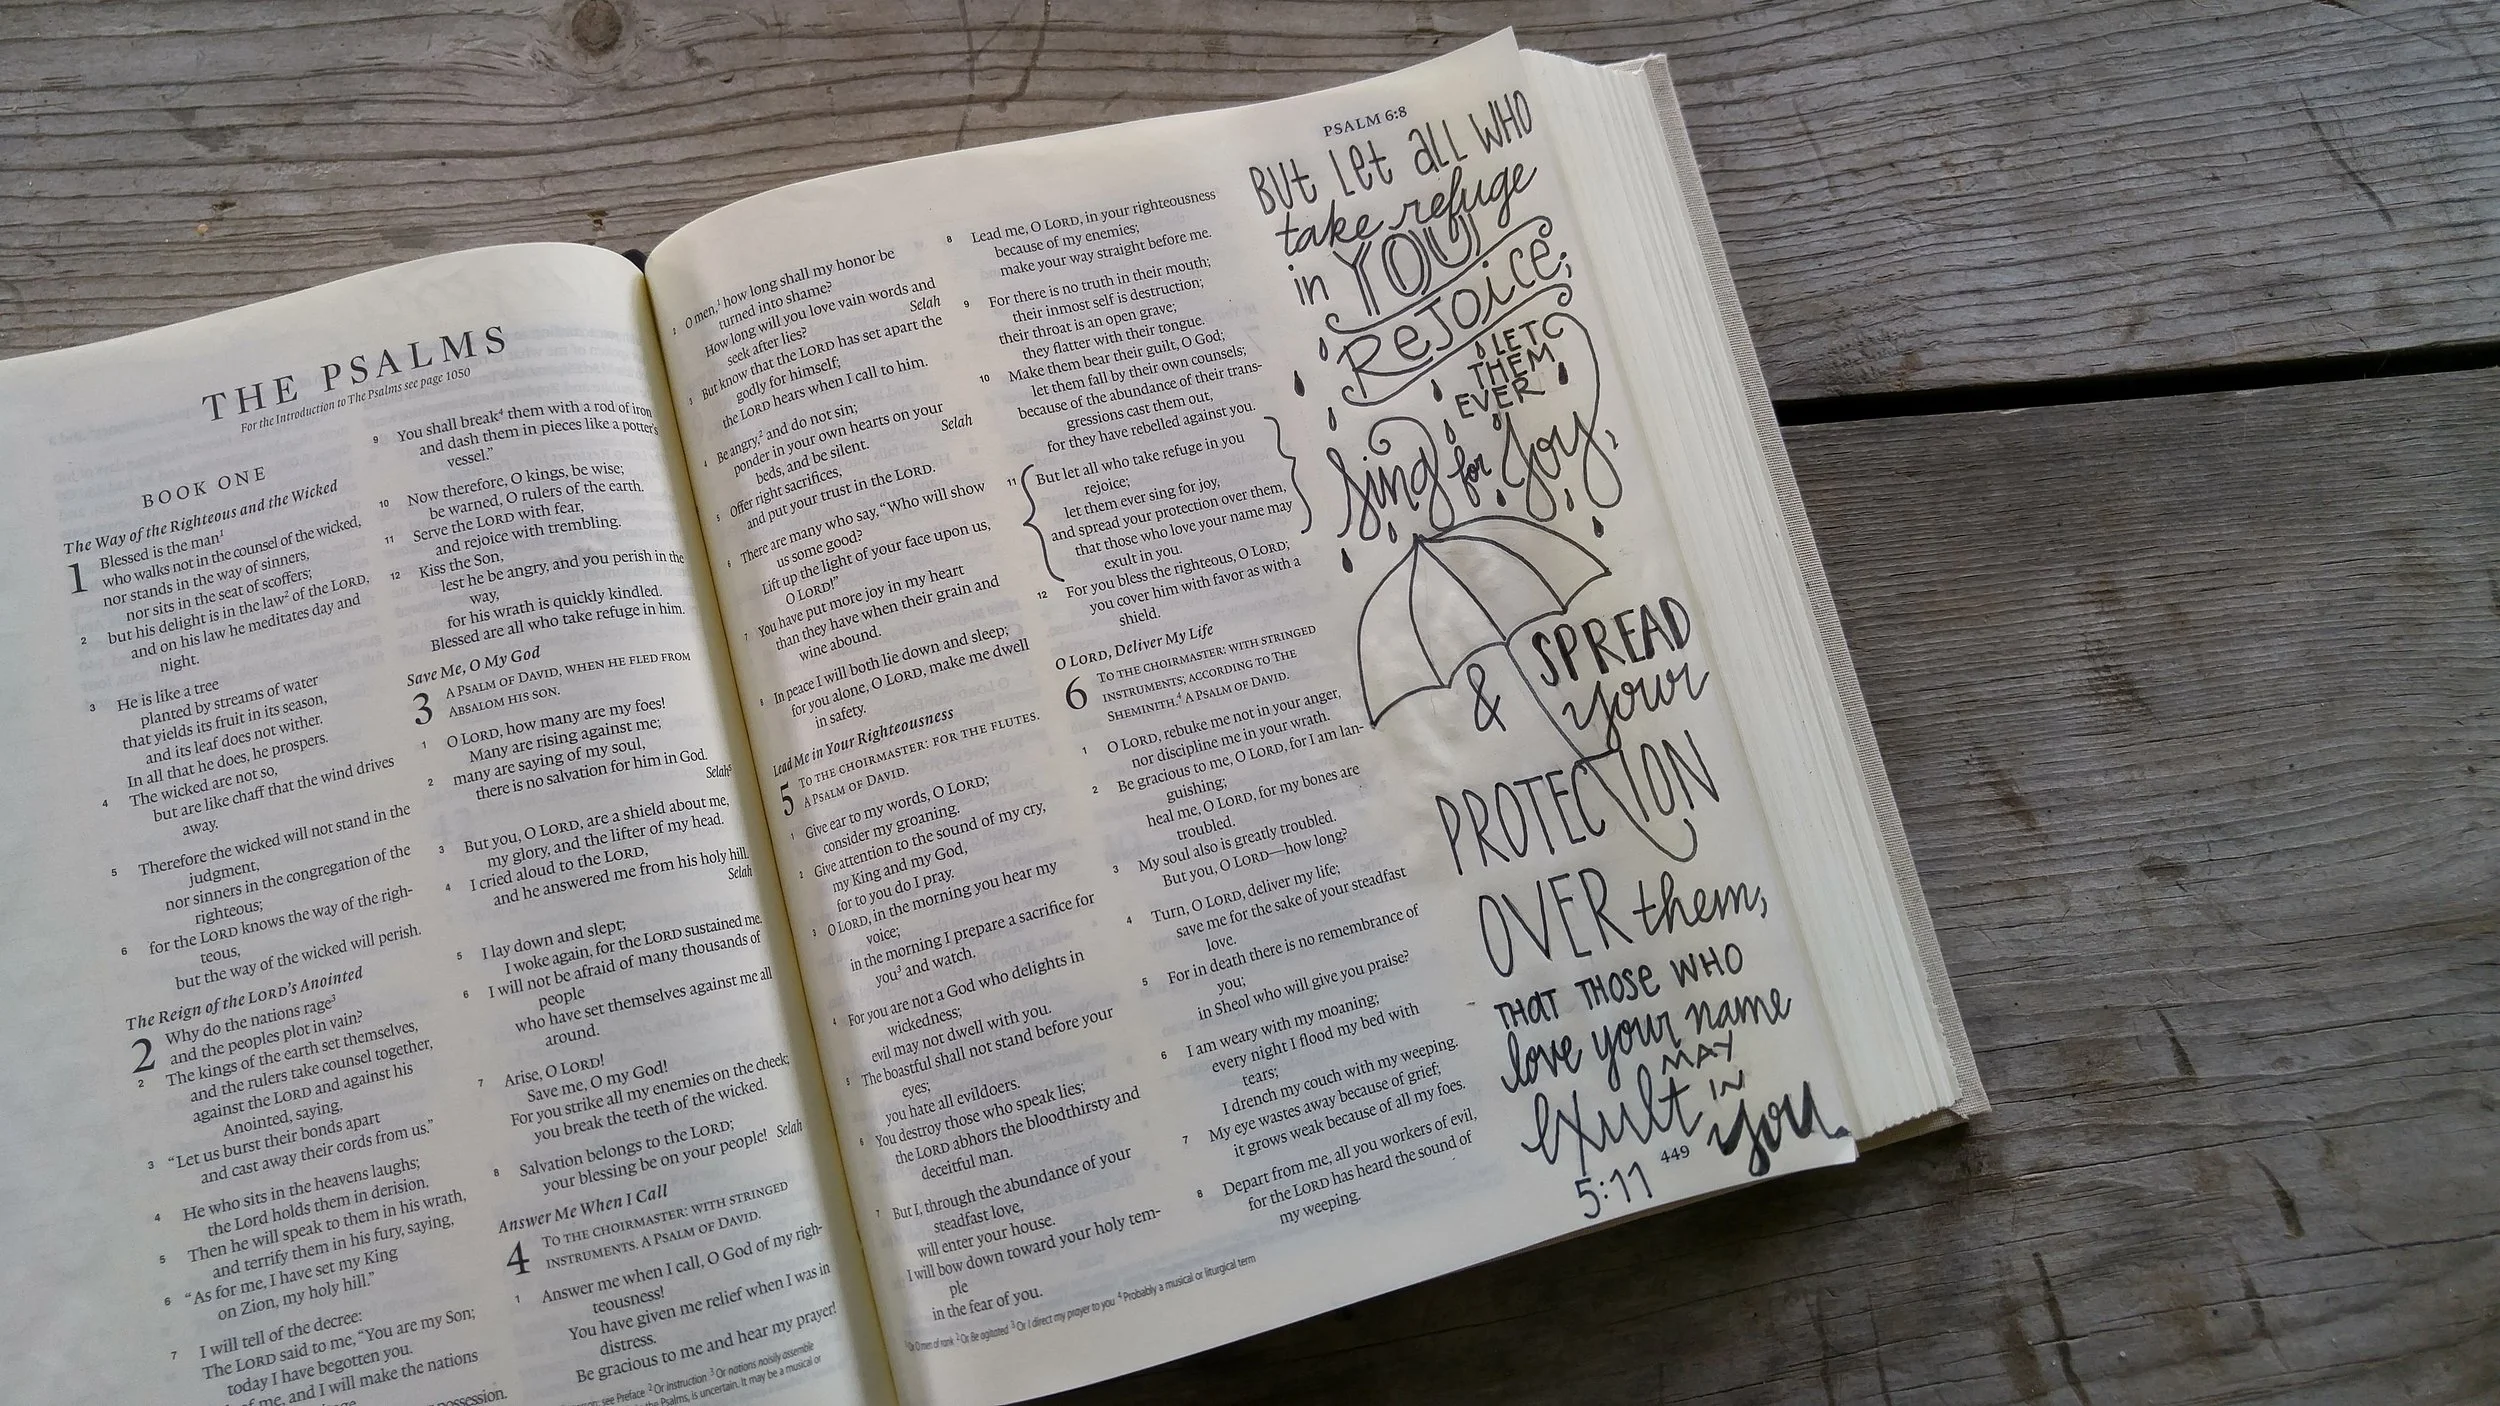 THE PSALMS
For the Introduction to The Psalms see page 1050
BOOK ONE
The Way of the Righteous and the Wicked
1 Blessed is the man1
who walks not in the counsel of the wicked,
nor stands in the way of sinners,
nor sits in the seat of scoffers;
2 but his delight is in the law2 of the LORD,
and on his law he meditates day and
night.
3 He is like a tree
planted by streams of water
that yields its fruit in its season,
and its leaf does not wither.
In all that he does, he prospers.
4 The wicked are not so,
but are like chaff that the wind drives
away.
5 Therefore the wicked will not stand in the
judgment,
nor sinners in the congregation of the
righteous;
6 for the LORD knows the way of the righ-
teous,
but the way of the wicked will perish.
The Reign of the LORD's Anointed
2 Why do the nations rage3
and the peoples plot in vain?
2 The kings of the earth set themselves,
and the rulers take counsel together,
against the LORD and against his
Anointed, saying,
3 “Let us burst their bonds apart
and cast away their cords from us.”
4 He who sits in the heavens laughs;
the Lord holds them in derision.
5 Then he will speak to them in his wrath,
and terrify them in his fury, saying,
6 “As for me, I have set my King
on Zion, my holy hill.”
7 I will tell of the decree:
The LORD said to me, “You are my Son;
today I have begotten you.
of me, and I will make the nations
possession.
9 You shall break4 them with a rod of iron
and dash them in pieces like a potter's
vessel.”
10 Now therefore, O kings, be wise;
be warned, O rulers of the earth.
11 Serve the LORD with fear,
and rejoice with trembling.
12 Kiss the Son,
lest he be angry, and you perish in the
way,
for his wrath is quickly kindled.
Blessed are all who take refuge in him.
Save Me, O My God
3 A PSALM OF DAVID, WHEN HE FLED FROM
ABSALOM HIS SON.
1 O LORD, how many are my foes!
Many are rising against me;
2 many are saying of my soul,
there is no salvation for him in God. Selah5
3 But you, O LORD, are a shield about me,
my glory, and the lifter of my head.
4 I cried aloud to the LORD,
and he answered me from his holy hill.
Selah
5 I lay down and slept;
I woke again, for the LORD sustained me.
6 I will not be afraid of many thousands of
people
who have set themselves against me all
around.
7 Arise, O LORD!
Save me, O my God!
For you strike all my enemies on the cheek;
you break the teeth of the wicked.
8 Salvation belongs to the LORD;
your blessing be on your people! Selah
Answer Me When I Call
4 TO THE CHOIRMASTER: WITH STRINGED
INSTRUMENTS. A PSALM OF DAVID.
1 Answer me when I call, O God of my righ-
teousness!
You have given me relief when I was in
distress.
Be gracious to me and hear my prayer!
see Preface 2 Or instruction 3 Or nations noisily assemble
the Psalms, is uncertain. It may be a musical or
PSALM 6:8
2 O men,1 how long shall my honor be
turned into shame?
How long will you love vain words and
seek after lies? Selah
3 But know that the LORD has set apart the
godly for himself;
the LORD hears when I call to him.
4 Be angry,2 and do not sin;
ponder in your own hearts on your
beds, and be silent. Selah
5 Offer right sacrifices,
and put your trust in the LORD.
6 There are many who say, “Who will show
us some good?
Lift up the light of your face upon us,
O LORD!”
7 You have put more joy in my heart
than they have when their grain and
wine abound.
8 In peace I will both lie down and sleep;
for you alone, O LORD, make me dwell
in safety.
Lead Me in Your Righteousness
5 TO THE CHOIRMASTER: FOR THE FLUTES.
A PSALM OF DAVID.
1 Give ear to my words, O LORD;
consider my groaning.
2 Give attention to the sound of my cry,
my King and my God,
for to you do I pray.
3 O LORD, in the morning you hear my
voice;
in the morning I prepare a sacrifice for
you3 and watch.
4 For you are not a God who delights in
wickedness;
evil may not dwell with you.
5 The boastful shall not stand before your
eyes;
you hate all evildoers.
6 You destroy those who speak lies;
the LORD abhors the bloodthirsty and
deceitful man.
7 But I, through the abundance of your
steadfast love,
will enter your house.
I will bow down toward your holy tem-
ple
in the fear of you.
8 Lead me, O LORD, in your righteousness
because of my enemies;
make your way straight before me.
9 For there is no truth in their mouth;
their inmost self is destruction;
their throat is an open grave;
they flatter with their tongue.
10 Make them bear their guilt, O God;
let them fall by their own counsels;
because of the abundance of their trans-
gressions cast them out,
for they have rebelled against you.
11 But let all who take refuge in you
rejoice;
let them ever sing for joy,
and spread your protection over them,
that those who love your name may
exult in you.
12 For you bless the righteous, O LORD;
you cover him with favor as with a
shield.
O LORD, Deliver My Life
6 TO THE CHOIRMASTER: WITH STRINGED
INSTRUMENTS; ACCORDING TO THE
SHEMINITH.4 A PSALM OF DAVID.
1 O LORD, rebuke me not in your anger,
nor discipline me in your wrath.
2 Be gracious to me, O LORD, for I am lan-
guishing;
heal me, O LORD, for my bones are
troubled.
3 My soul also is greatly troubled.
But you, O LORD—how long?
4 Turn, O LORD, deliver my life;
save me for the sake of your steadfast
love.
5 For in death there is no remembrance of
you;
in Sheol who will give you praise?
6 I am weary with my moaning;
every night I flood my bed with
tears;
I drench my couch with my weeping.
7 My eye wastes away because of grief;
it grows weak because of all my foes.
8 Depart from me, all you workers of evil,
for the LORD has heard the sound of
my weeping.
1 Or O men of rank 2 Or Be agitated 3 Or I direct my prayer to you 4 Probably a musical or liturgical term
449
BUt Let all WHO
take refuge
in YOU
REJOICE;
LET
THEM
EVER
Sing for Joy,
& SPREAD
your
PROTECTION
OVER them,
THAT THOSE WHO
love your name
MAY
exult IN
you
5:11